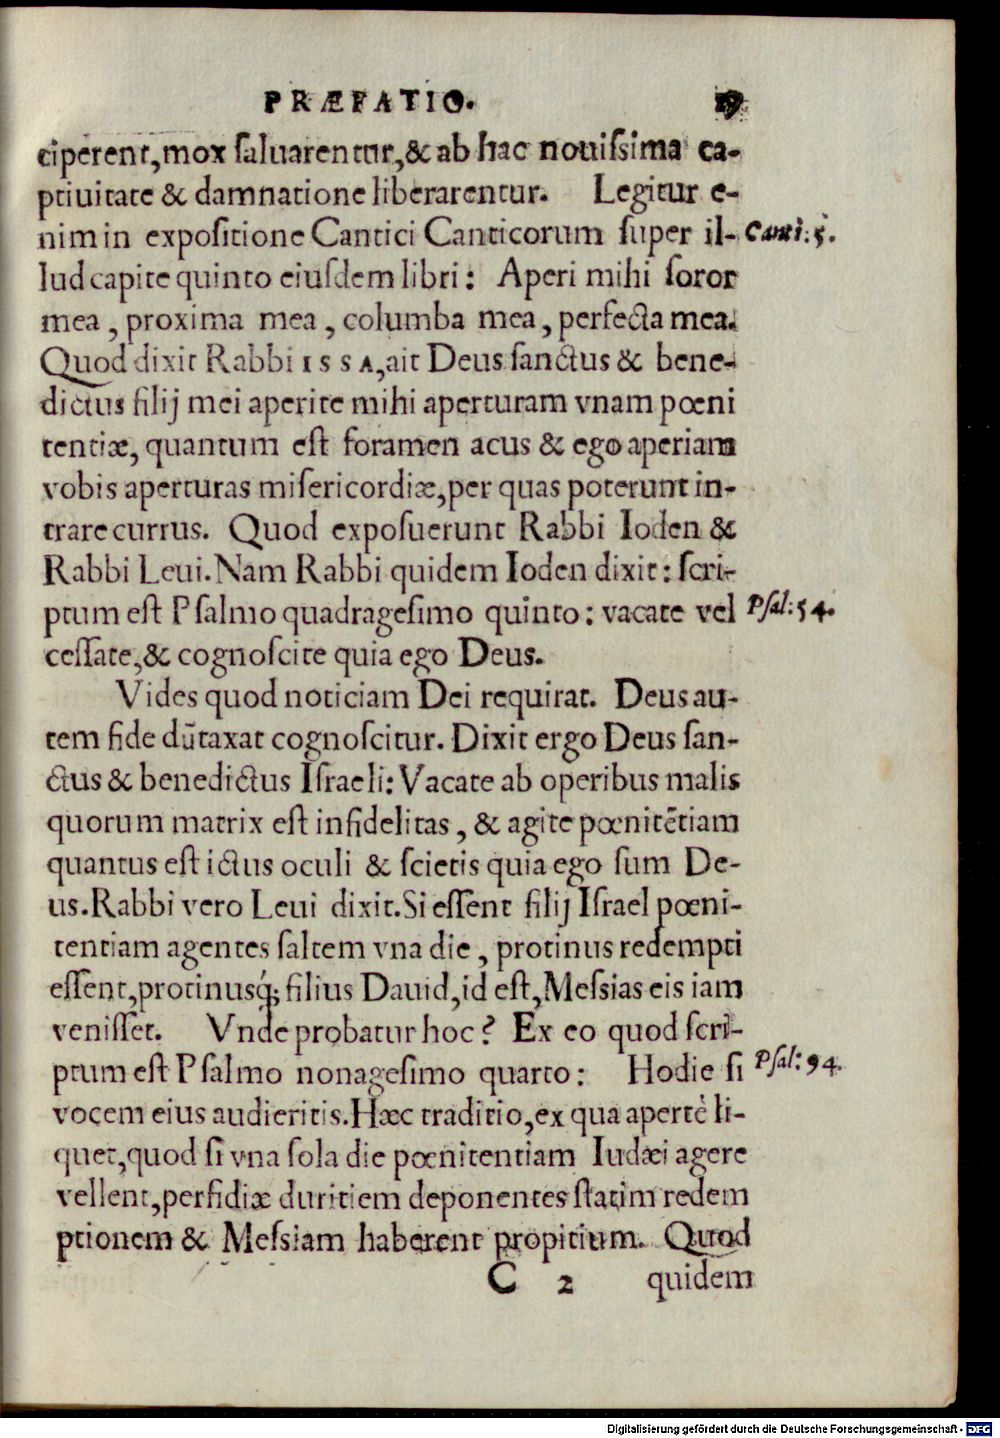 PRÆFATIO. 19
ciperent,mox saluarentur,& ab hac nouissima ca-
ptiuitate & damnatione liberarentur. Legitur e-
nim in expositione Cantici Canticorum super il- Canti:5.
lud capite quinto eiusdem libri: Aperi mihi soror
mea, proxima mea, columba mea, perfecta mea.
Quod dixit Rabbi ISSA,ait Deus sanctus & bene-
dictus filij mei aperite mihi aperturam vnam pœni
tentiæ, quantum est foramen acus & ego aperiam
vobis aperturas misericordiæ,per quas poterunt in-
trare currus. Quod exposuerunt Rabbi Ioden &
Rabbi Leui. Nam Rabbi quidem Ioden dixit: scri-
ptum est Psalmo quadragesimo quinto: vacate vel Psal:54.
cessate,& cognoscite quia ego Deus.
Vides quod noticiam Dei requirat. Deus au-
tem fide dūtaxat cognoscitur. Dixit ergo Deus san-
ctus & benedictus Israeli: Vacate ab operibus malis
quorum matrix est infidelitas, & agite pœnitētiam
quantus est ictus oculi & scietis quia ego sum De-
us. Rabbi vero Leui dixit. Si essent filij Israel pœni-
tentiam agentes saltem vna die, protinus redempti
essent,protinusq́; filius Dauid,id est,Messias eis iam
venisset. Vnde probatur hoc? Ex eo quod scri-
ptum est Psalmo nonagesimo quarto: Hodie si Psal:94.
vocem eius audieritis. Hæc traditio,ex qua apertè li-
quet,quod si vna sola die pœnitentiam Iudæi agere
vellent,perfidiæ duritiem deponentes statim redem
ptionem & Messiam haberent propitium. Quod
C 2 quidem
Digitalisierung gefördert durch die Deutsche Forschungsgemeinschaft - DFG